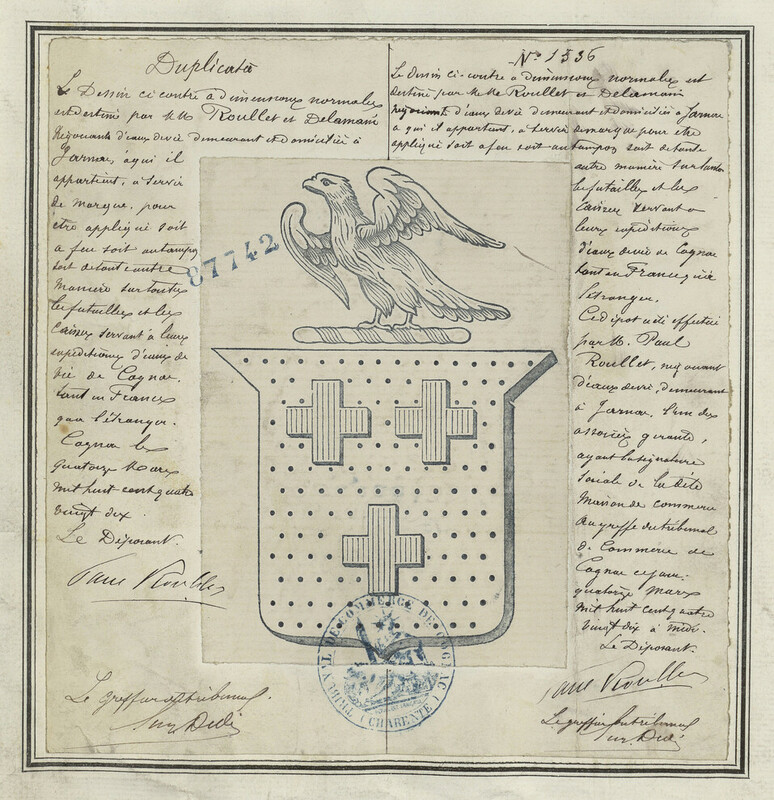 Duplicata
Le Dessin ci contre à dimensions normales
est destiné par MM Roullet et Delamain
Négociants d'eaux de vie demeurant et domiciliés à
Jarnac, à qui il
appartient, à servir
de marque pour
être appliqué soit
à feu soit au tampon
soit de toute autre
manière sur toutes
les futailles et les
caisses servant à leurs
expéditions d'eaux de
vie de Cognac,
tant en France
qu'à l'étranger.
Cognac le
quatorze Mars
mil huit cent quatre
vingt dix.
Le Déposant.
Paul Roullet
Le greffier du tribunal
N° 1536
Le dessin ci-contre à dimensions normales est
destiné par MM. Roullet et Delamain
négociants d'eaux de vie demeurant et domiciliés à Jarnac
à qui il appartient, à servir de marque pour être
appliqué soit à feu soit au tampon soit de toute
autre manière sur toutes
les futailles et les
caisses servant à
leurs expéditions
d'eaux de vie de Cognac
tant en France qu'à
l'étranger.
Ce dépôt a été effectué
par M. Paul
Roullet, négociant
d'eaux de vie, demeurant
à Jarnac, l'un des
associés gérants,
ayant la signature
sociale de la dite
Maison de commerce
au greffe du tribunal
de Commerce de
Cognac ce jour
quatorze Mars
mil huit cent quatre
vingt dix à midi.
Le Déposant.
Paul Roullet
Le greffier du tribunal
87742
TRIBUNAL DE COMMERCE DE COGNAC
(CHARENTE)